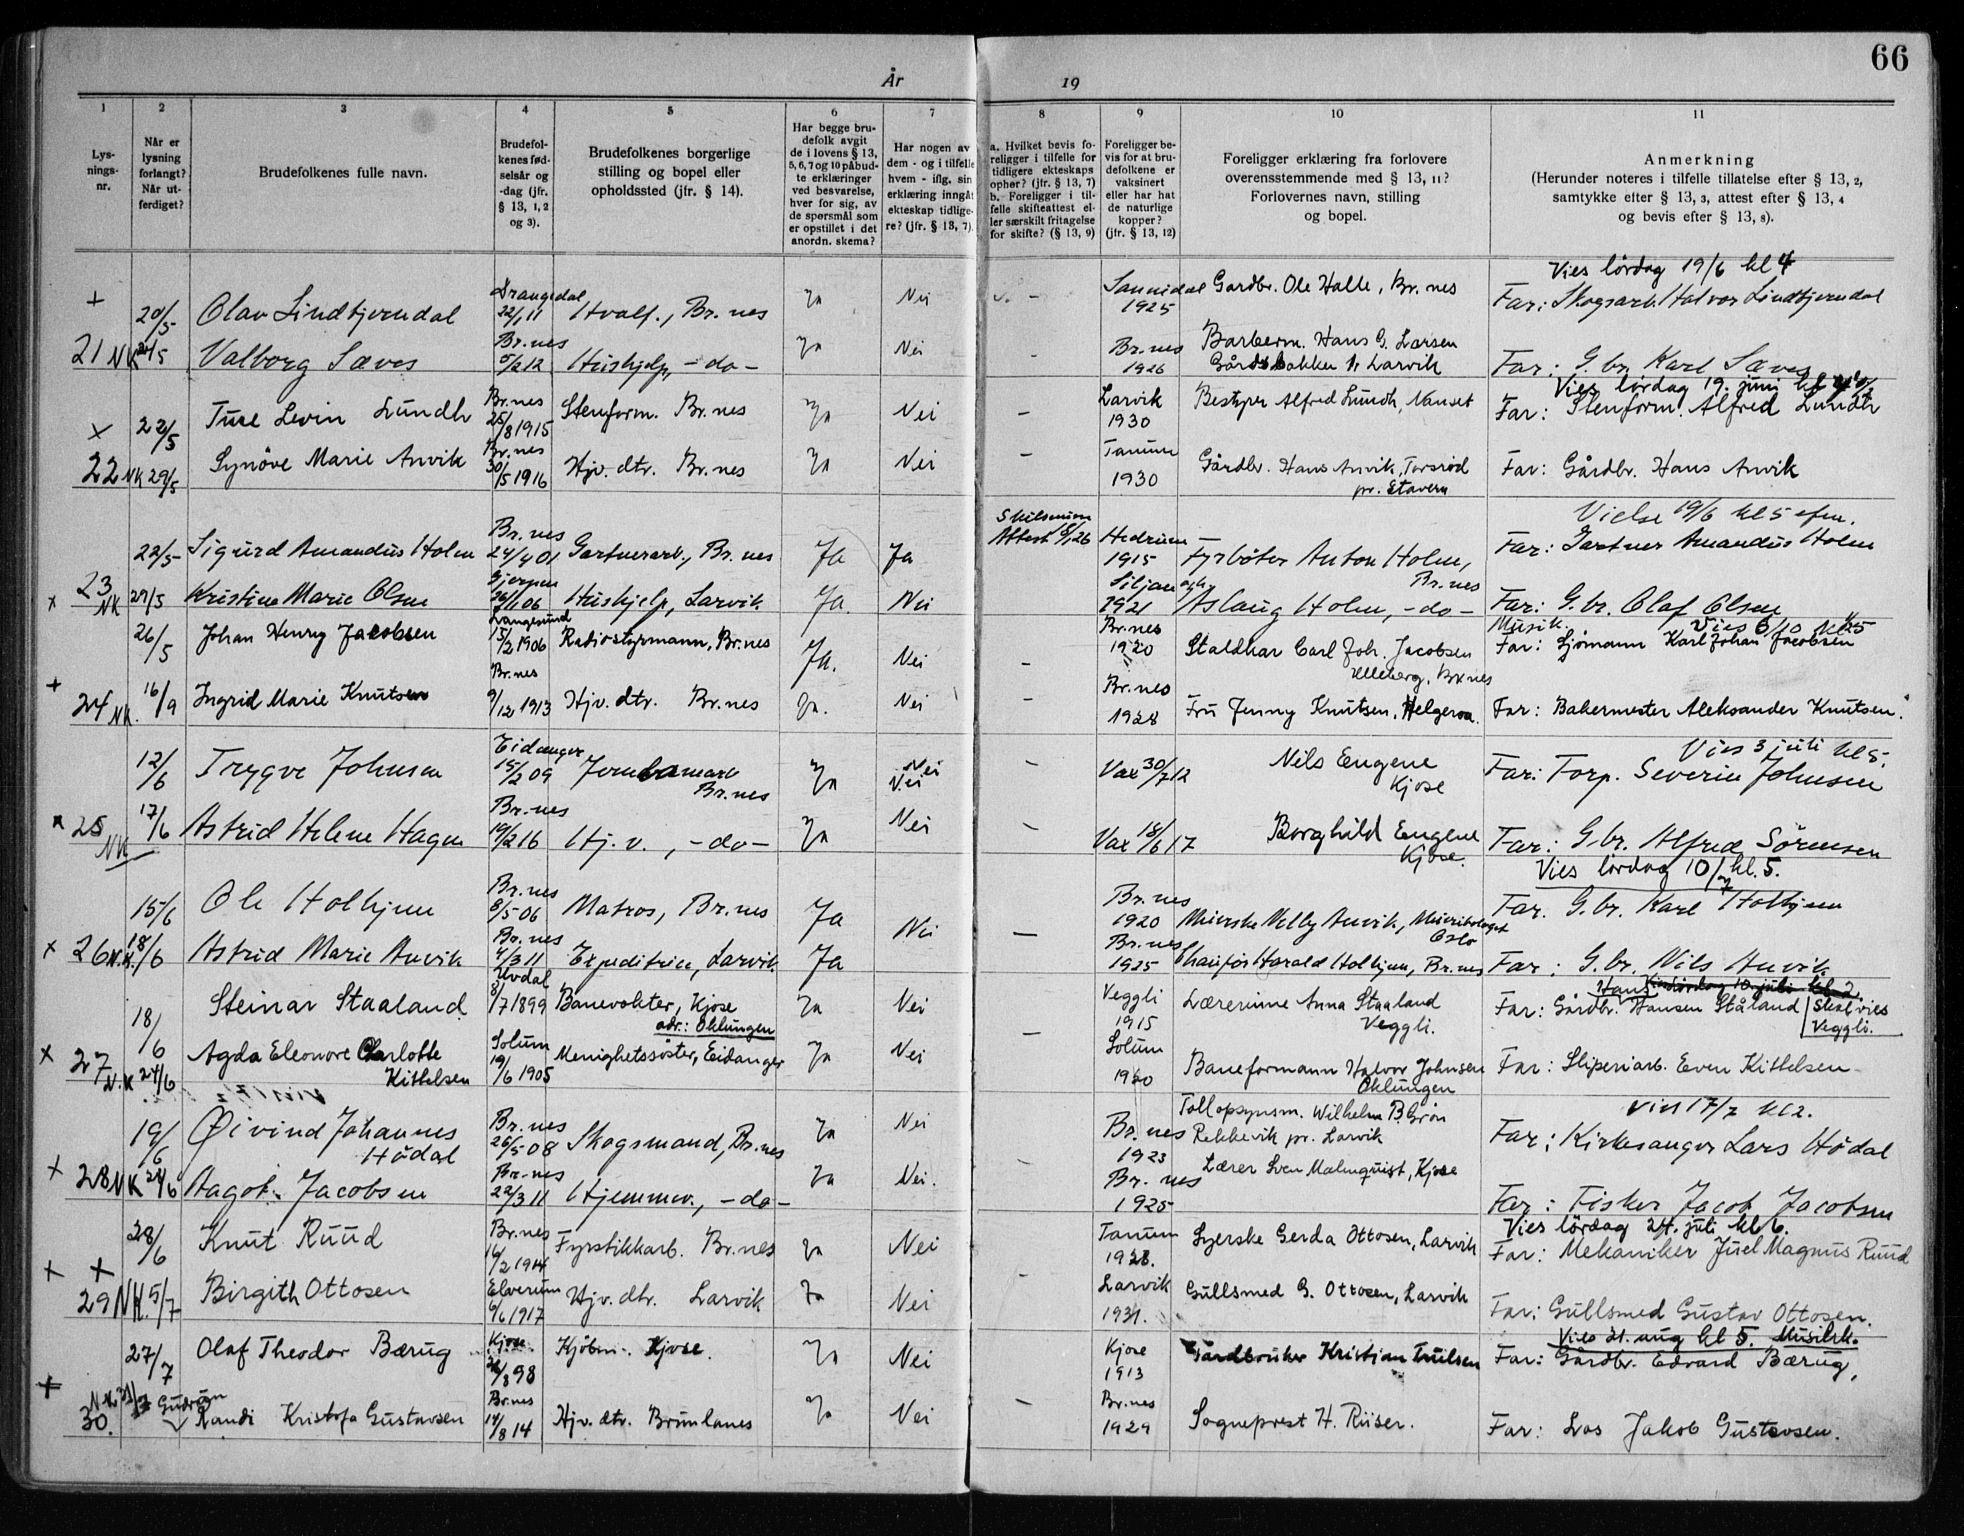 66
År 19
1 2 3 4 5 6 7 8 9 10 11
Lys-
nings-
nr.
Når er
lysning
forlangt?
Når ut-
ferdiget?
Brudefolkenes fulle navn.
Brudefol-
kenes fød-
selsår og
-dag (jfr.
§ 13, 1, 2
og 3).
Brudefolkenes borgerlige
stilling og bopel eller
opholdssted (jfr. § 14).
Har begge bru-
defolk avgit
de i lovens § 13,
5, 6, 7 og 10 påbud-
te erklæringer
ved besvarelse,
hver for sig, av
de spørsmål som
er opstillet i det
anordn. skema?
Har nogen av
dem - og i tilfelle
hvem - iflg. sin
erklæring inngått
ekteskap tidlige-
re? (jfr. § 13, 7).
a. Hvilket bevis fo-
religger i tilfelle for
tidligere ekteskaps
ophør? (jfr. § 13, 7)
b. Foreligger i til-
felle skifteattest el-
ler særskilt fritagelse
for skifte? (§ 13, 9)
Foreligger be-
vis for at bru-
defolkene er
vaksinert
eller har hat
de naturlige
kopper?
(jfr. § 13, 12)
Foreligger erklæring fra forlovere
overensstemmende med § 13, 11?
Forlovernes navn, stilling
og bopel.
Anmerkning
(Herunder noteres i tilfelle tillatelse efter § 13, 2,
samtykke efter § 13, 3, attest efter § 13, 4
og bevis efter § 13, 8).
Vies lördag 19/6 kl 4
+ 20/5 Olav Lindtjerndal Drangedal 22/1 11 Hvalf., Br.nes Ja Nei - Sannidal 1925 Gardbr. Ole Halle, Br.nes Far: Skogsarb. Halvor Lindtjerndal
21 NK 24/5 Valborg Sæves Br.nes 5/2 12 Hushjelp, -do- Ja Nei - Br.nes 1926 Barberm. Hans G. Larsen
Larvik Far: G.br. Karl Sæves
Vies lørdag 19. juni
x 22/5 Ture Levin Lundh Br.nes 25/8 1915 Stenform. Br.nes Ja Nei - Larvik 1930 Bestyrer Alfred Lundh, Nanset Far: Stenform. Alfred Lundh
22 NK 29/5 Synöve Marie Anvik Br.nes 30/5 1916 Hjv. dtr. Br.nes Ja Nei - Tanum 1930 Gårdbr. Hans Anvik, Torsröd
pr. Stavern Far: Gårdbr. Hans Anvik
Vielse 19/6 kl 5 efm.
22/5 Sigurd Amandus Holm Br.nes 24/4 01 Gartnerarb., Br.nes Ja Ja Skilsmiss Attest Hedrum 1915 Fyrböter Anton Holm,
Br.nes Far: Gartner Amandus Holm
x 23 NK 27/5 Kristine Marie Olsen Gjerpen 26/1 06 Hushjelp, Larvik Ja Nei Siljan 1921 og Aslaug Holm, -do- Far: G.br. Olaf Olsen
Musik. Vies 6/10
26/5 Johan Henry Jacobsen Langesund 15/2 1906 Radiostyrmann, Br.nes Ja. Nei - Br.nes 1920 Staldkar Carl Joh. Jacobsen
Ulleberg, Br.nes Far: Sjömann Karl Johan Jacobsen
+ 24 NK. 16/9 Ingrid Marie Knutsen Br.nes 9/12 1913 Hjv. dtr. Br.nes Ja. Nei - Br.nes 1928 Fru Jenny Knutsen, Helgeroa. Far: Bakermester Aleksander Knutsen.
Vies 3 juli kl 5.
12/6 Trygve Johnsen Eidanger 15/2 09 Br.nes Ja Nei Nei - Vax 30/7 12 Nils Eugene
Kjose Far: Torp. Severin Johnsen
x 25 NK 17/6 Astrid Helene Hagen Br.nes 19/2 16 Hj.v., -do- Ja Nei - Vax 18/6 17 Borghild Eugene
Kjose. Far: G.br. Alfred Sørensen
Vies lördag 10/7 kl. 5.
15/6 Ole Holhjem Br.nes 8/5-06 Matros, Br.nes Ja Nei - Br.nes 1920 Nelly Anvik,
Oslo Far. G.br. Karl Holhjem
x 26 N.K. 18/6 Astrid Marie Anvik Br.nes 4/3 11 Expeditrice, Larvik Ja Br.nes 1925 Chaufør Harald Holhjem, Br.nes Far: G.br. Nils Anvik
18/6 Steinar Staaland Uvdal 8/7 1899 Banevokter, Kjose
adr.: Oklungen Ja Nei - Veggli 1915 Lærerinne Anna Staaland
Veggli. Far: Gårdbr. Hans Hansen Ståland Skal vies
Veggli.
x 27 N.K 24/6 Agda Eleonore Charlotte
Kittelsen Solum 19/6 1905 Menighetssöster, Eidanger Ja Nei Solum 1920 Baneformann Halvor Johnsen
Oklungen Far: Sliperiarb. Even Kittelsen
Vies 17/7 kl 2.
19/6 Øivind Johannes
Hödal Br.nes 26/5-08 Skogsmand, Br.nes Ja Nei - Br.nes 1923 Tollopsynsm. Wilhelm B. Grön
Rekkevik pr. Larvik Far: Kirkesanger Lars Hödal
+ 28 NK 24/6 Aagot Jacobsen Br.nes 22/3 11 Hjemmev., -do- Ja Nei. Br.nes 1925 Lærer Sven Malmquist, Kjose Far: Fisker Jacob Jacobsen
Vies lördag 24. juli kl 6.
28/6 Knut Ruud Br.nes 16/2 1914 Fyrstikkarb. Br.nes Ja Nei - Tanum 1928. Syerske Gerda Ottosen, Larvik Far: Mekaniker Juel Magnus Ruud
+ + 29 NK. 5/7 Birgith Ottosen Elverum 6/6 1917 Hjv. dtr. Larvik Ja Nei Larvik 1931. Gullsmed G. Ottosen, Larvik Far: Gullsmed Gustav Ottosen.
Vies 21. aug kl 5. Musikk.
27/7 Olaf Theodor Bærug Kjose 98 Kjöbm. Kjose. Ja Nei Kjose 1913 Gårdbruker Kristian Trulsen Far: Gårdbr. Edvard Bærug,
+ 30. Gudrun
Randi Kristofa Gustavsen Br.nes 14/8 14 Hjv. dtr. Brunlanes Ja Nei - Br.nes 1929 Sogneprest H. Riiser. Far: Los Jakob Gustavsen.